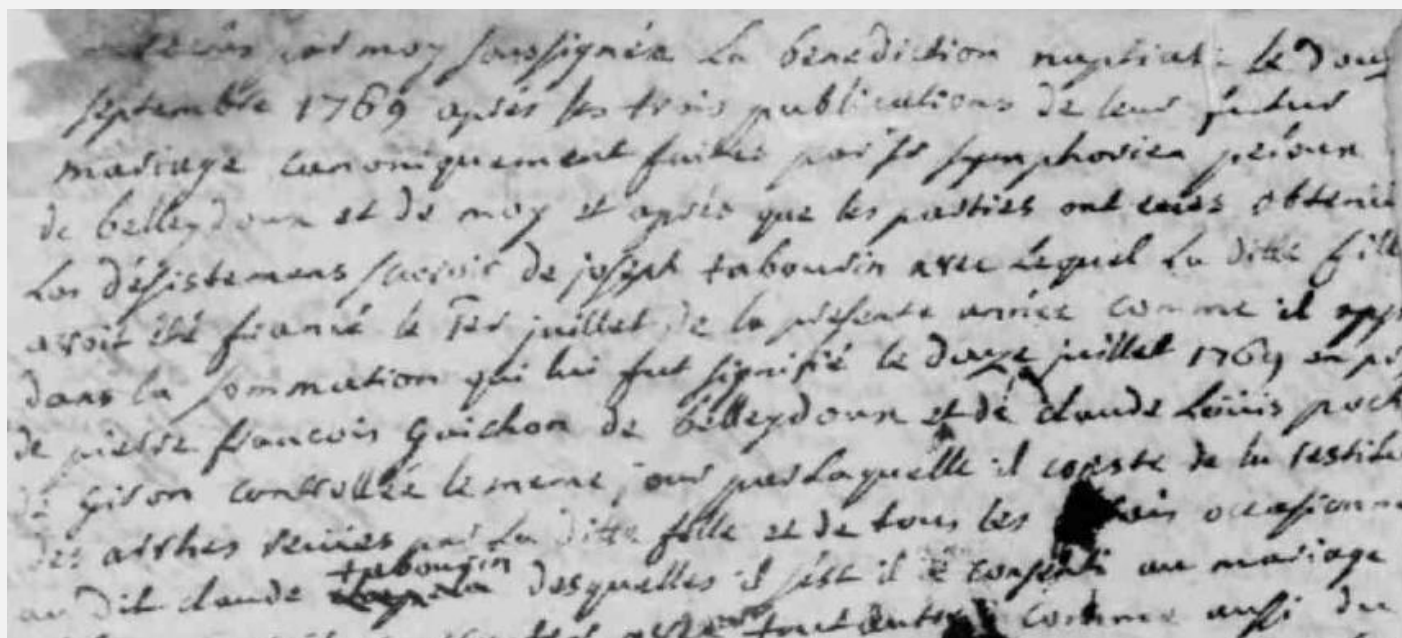 par moy soussignée La benediction nuptial le
septembre 1769 aprés les trois publications de leur futur
mariage canoniquement faites par sr symphorien
de belleydoux et de moy et aprés que les parties ont obtenu
Les désistemens sçavoir de joseph tabourin avec Lequel La ditte fille
avoit été fiancé le 1er juillet de la presente année comme il
dans la sommation qui lui fut signifié le douze juillet 1769 en
de pierre francois Guichon de belleydoux et de claude Loüis
de Giron controllée le meme jour par Laquelle il conste de la
des arrhes par La ditte fille et de tous les occasionn
au dit claude tabourin desquelles il s'est il consenti au mariage
tout autre comme aussi du